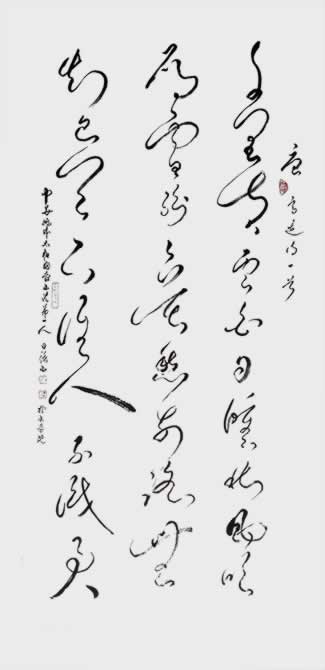 唐高适诗一首
千里黄云白日曛北风吹
雁雪纷纷莫愁前路无
知己天下谁人不识君
第一人